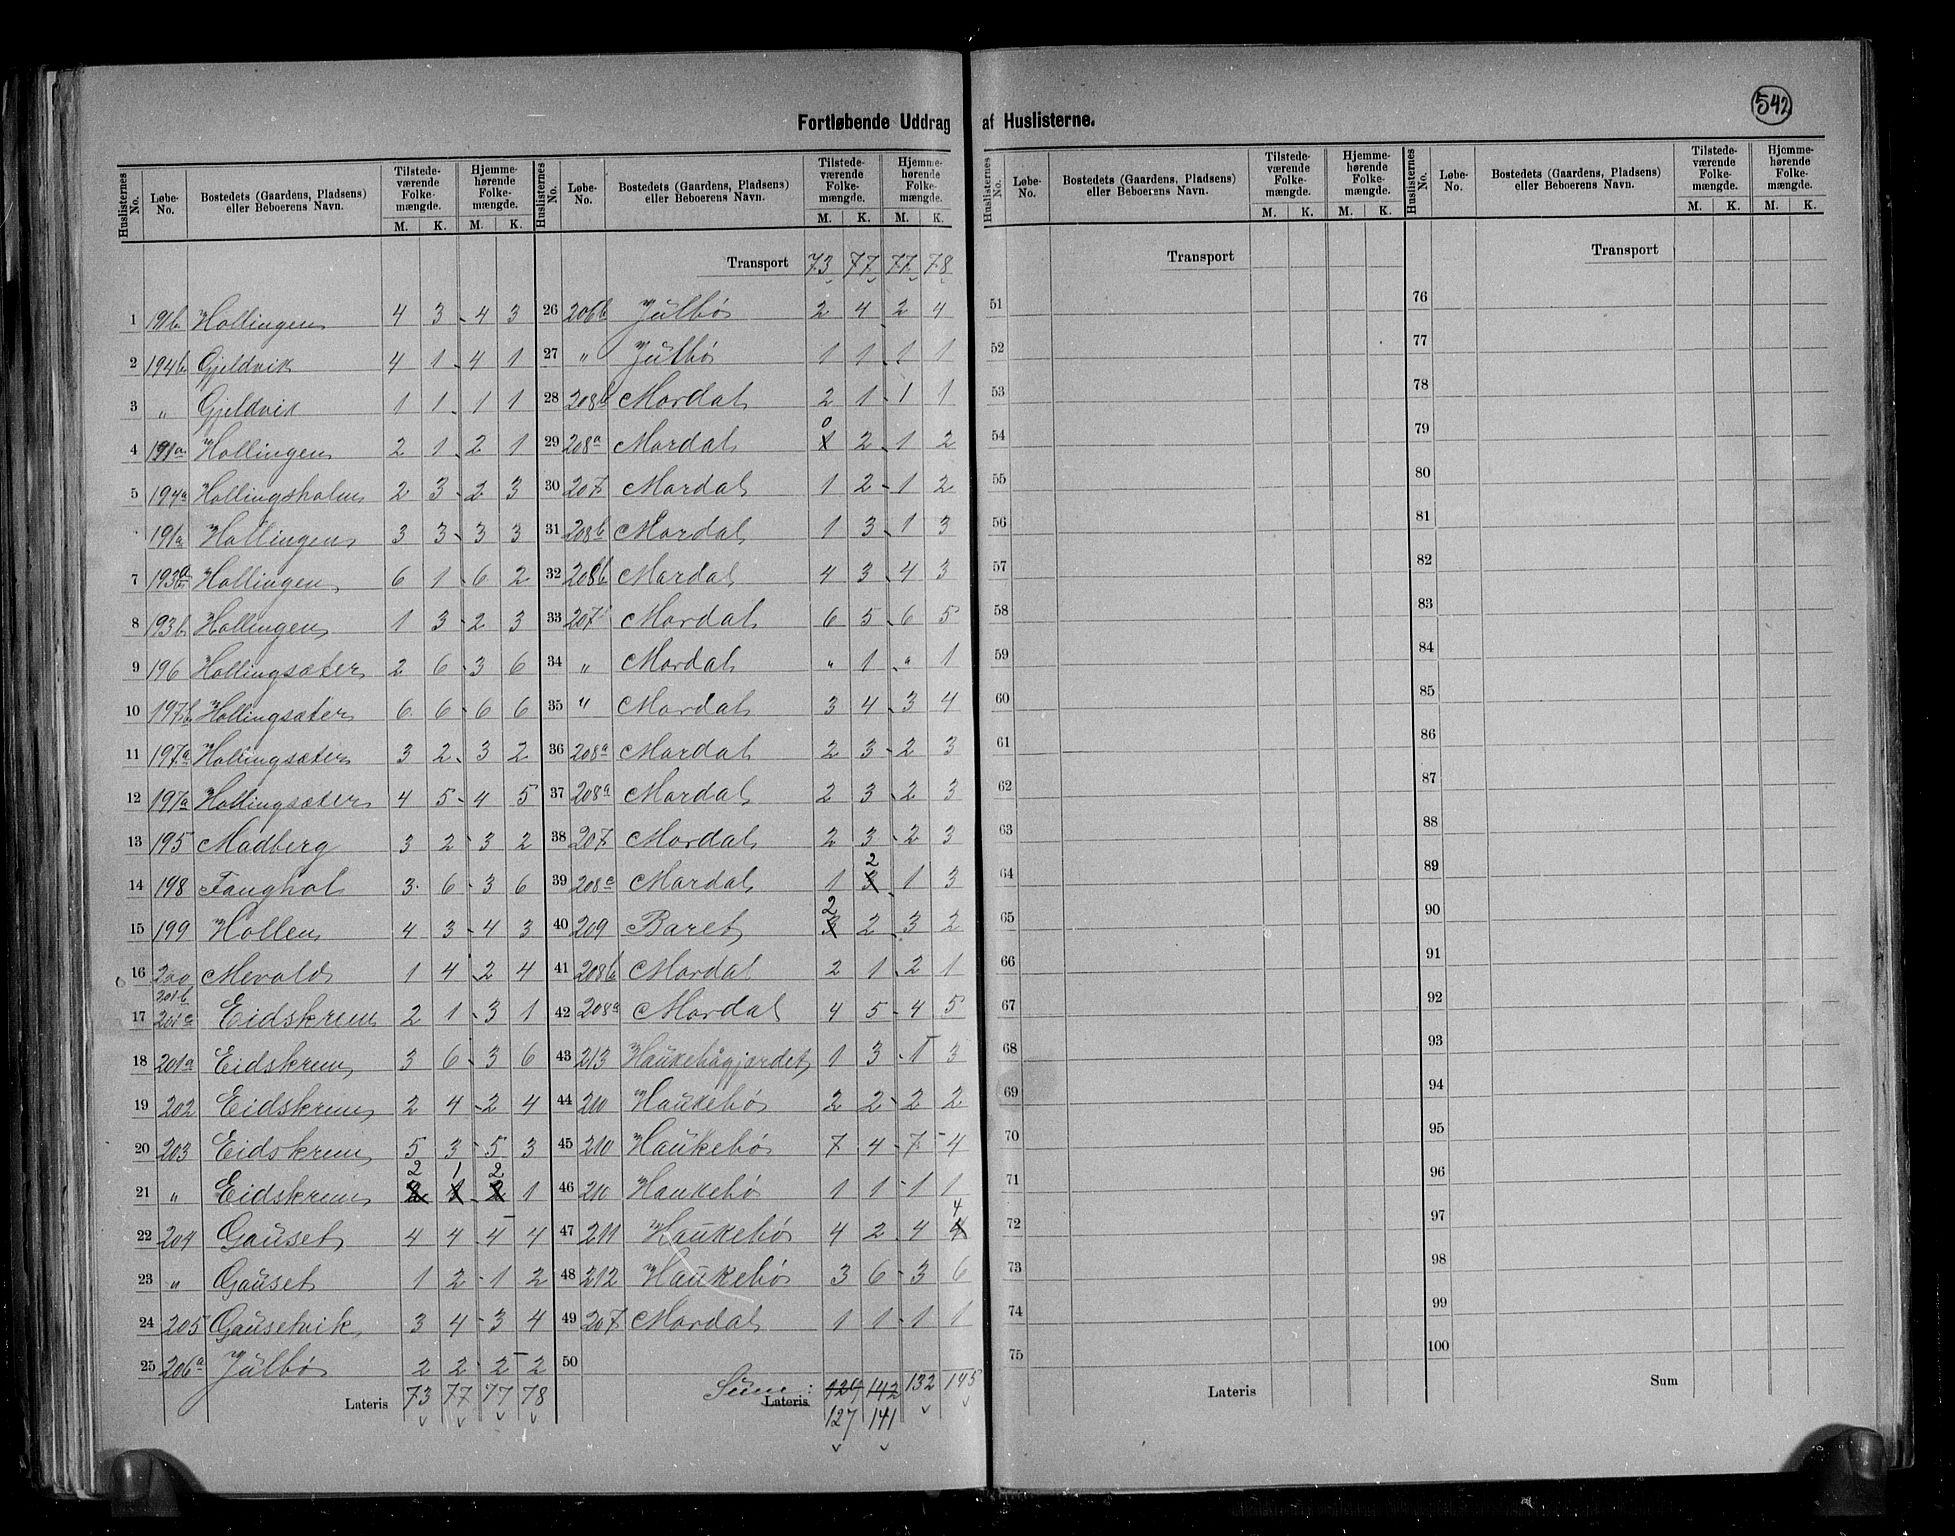 542
Fortløbende Uddrag af Huslisterne.
Huslisternes No. Løbe-No. Bostedets (Gaardens, Pladsens) eller Beboerens Navn. Tilstedeværende Folkemængde. M. K. Hjemmehørende Folkemængde. M. K.
1 191b Hollingen 4 3 - 4 3
2 194b Gjeldvik 4 1 - 4 1
3 " Gjeldvik 1 1 - 1 1
4 191a Hollingen 2 1 - 2 1
5 194a Hollingsholm 2 3 - 2 3
191a Hollingen 3 3 - 3 3
7 193a Hollingen 6 1 - 6 2
8 193b Hollingen 1 3 - 2 3
9 196 Hollingsæter 2 6 - 3 6
10 197b Hollingsæter 6 6 - 6 6
11 197a Hollingsæter 3 2 - 3 2
12 197a Hollingsæter 4 5 - 4 5
13 195 Madberg 3 2 - 3 2
14 198 Fanghol 3 6 - 3 6
15 199 Hollen 4 3 - 4 3
16 200 Mevold 1 4 - 2 4
17 201b 201c Eidskrem 2 1 - 3 1
18 201a Eidskrem 3 6 - 3 6
19 202 Eidskrem 2 4 - 2 4
20 203 Eidskrem 5 3 - 5 3
21 " Eidskrem 2 1 2 1
22 204 Gauset 4 4 - 4 4
23 " Gauset 1 2 - 1 2
24 205 Gausetvik 3 4 - 3 4
25 206a Julbø 2 2 - 2 2
Lateris 73 77 77 78
Huslisternes No. Løbe-No. Bostedets (Gaardens, Pladsens) eller Beboerens Navn. Tilstedeværende Folkemængde. M. K. Hjemmehørende Folkemængde. M. K.
Transport 73 77 77 78
26 206b Julbø 2 4 - 2 4
27 " Julbø 1 1 - 1 1
28 208b Mordal 2 1 - 1 1
29 208a Mordal 0 1 2 - 1 2
30 207 Mordal 1 2 - 1 2
31 208b Mordal 1 3 - 1 3
32 208b Mordal 4 3 - 4 3
33 207 Mordal 6 5 - 6 5
34 " Mordal " 1 - " 1
35 " Mordal 3 4 - 3 4
36 208a Mordal 2 3 - 2 3
37 208a Mordal 2 3 - 2 3
38 207 Mordal 2 3 - 2 3
39 208c Mordal 1 2 3 - 1 3
40 209 Baret 2 3 2 - 3 2
41 208b Mordal 2 1 - 2 1
42 208a Mordal 4 5 - 4 5
43 213 Haukebøgjærdet 1 3 - 1 3
44 210 Haukebø 2 2 - 2 2
45 210 Haukebø 7 4 - 7 4
46 210 Haukebø 1 1 - 1 1
47 211 Haukebø 4 2 - 4 4
48 212 Haukebø 3 6 - 3 6
49 207 Mordal 1 1 - 1 1
50
Sum: Lateris 129 142 132 145
127 141
Huslisternes No. Løbe-No. Bostedets (Gaardens, Pladsens) eller Beboerens Navn. Tilstedeværende Folkemængde. M. K. Hjemmehørende Folkemængde. M. K.
Transport
51
52
53
54
55
56
57
58
59
60
61
62
63
64
65
66
67
68
69
70
71
72
73
74
75
Lateris
Huslisternes No. Løbe-No. Bostedets (Gaardens, Pladsens) eller Beboerens Navn. Tilstedeværende Folkemængde. M. K. Hjemmehørende Folkemængde. M. K.
Transport
76
77
78
79
80
81
82
83
84
85
86
87
88
89
90
91
92
93
94
95
96
97
98
99
100
Sum